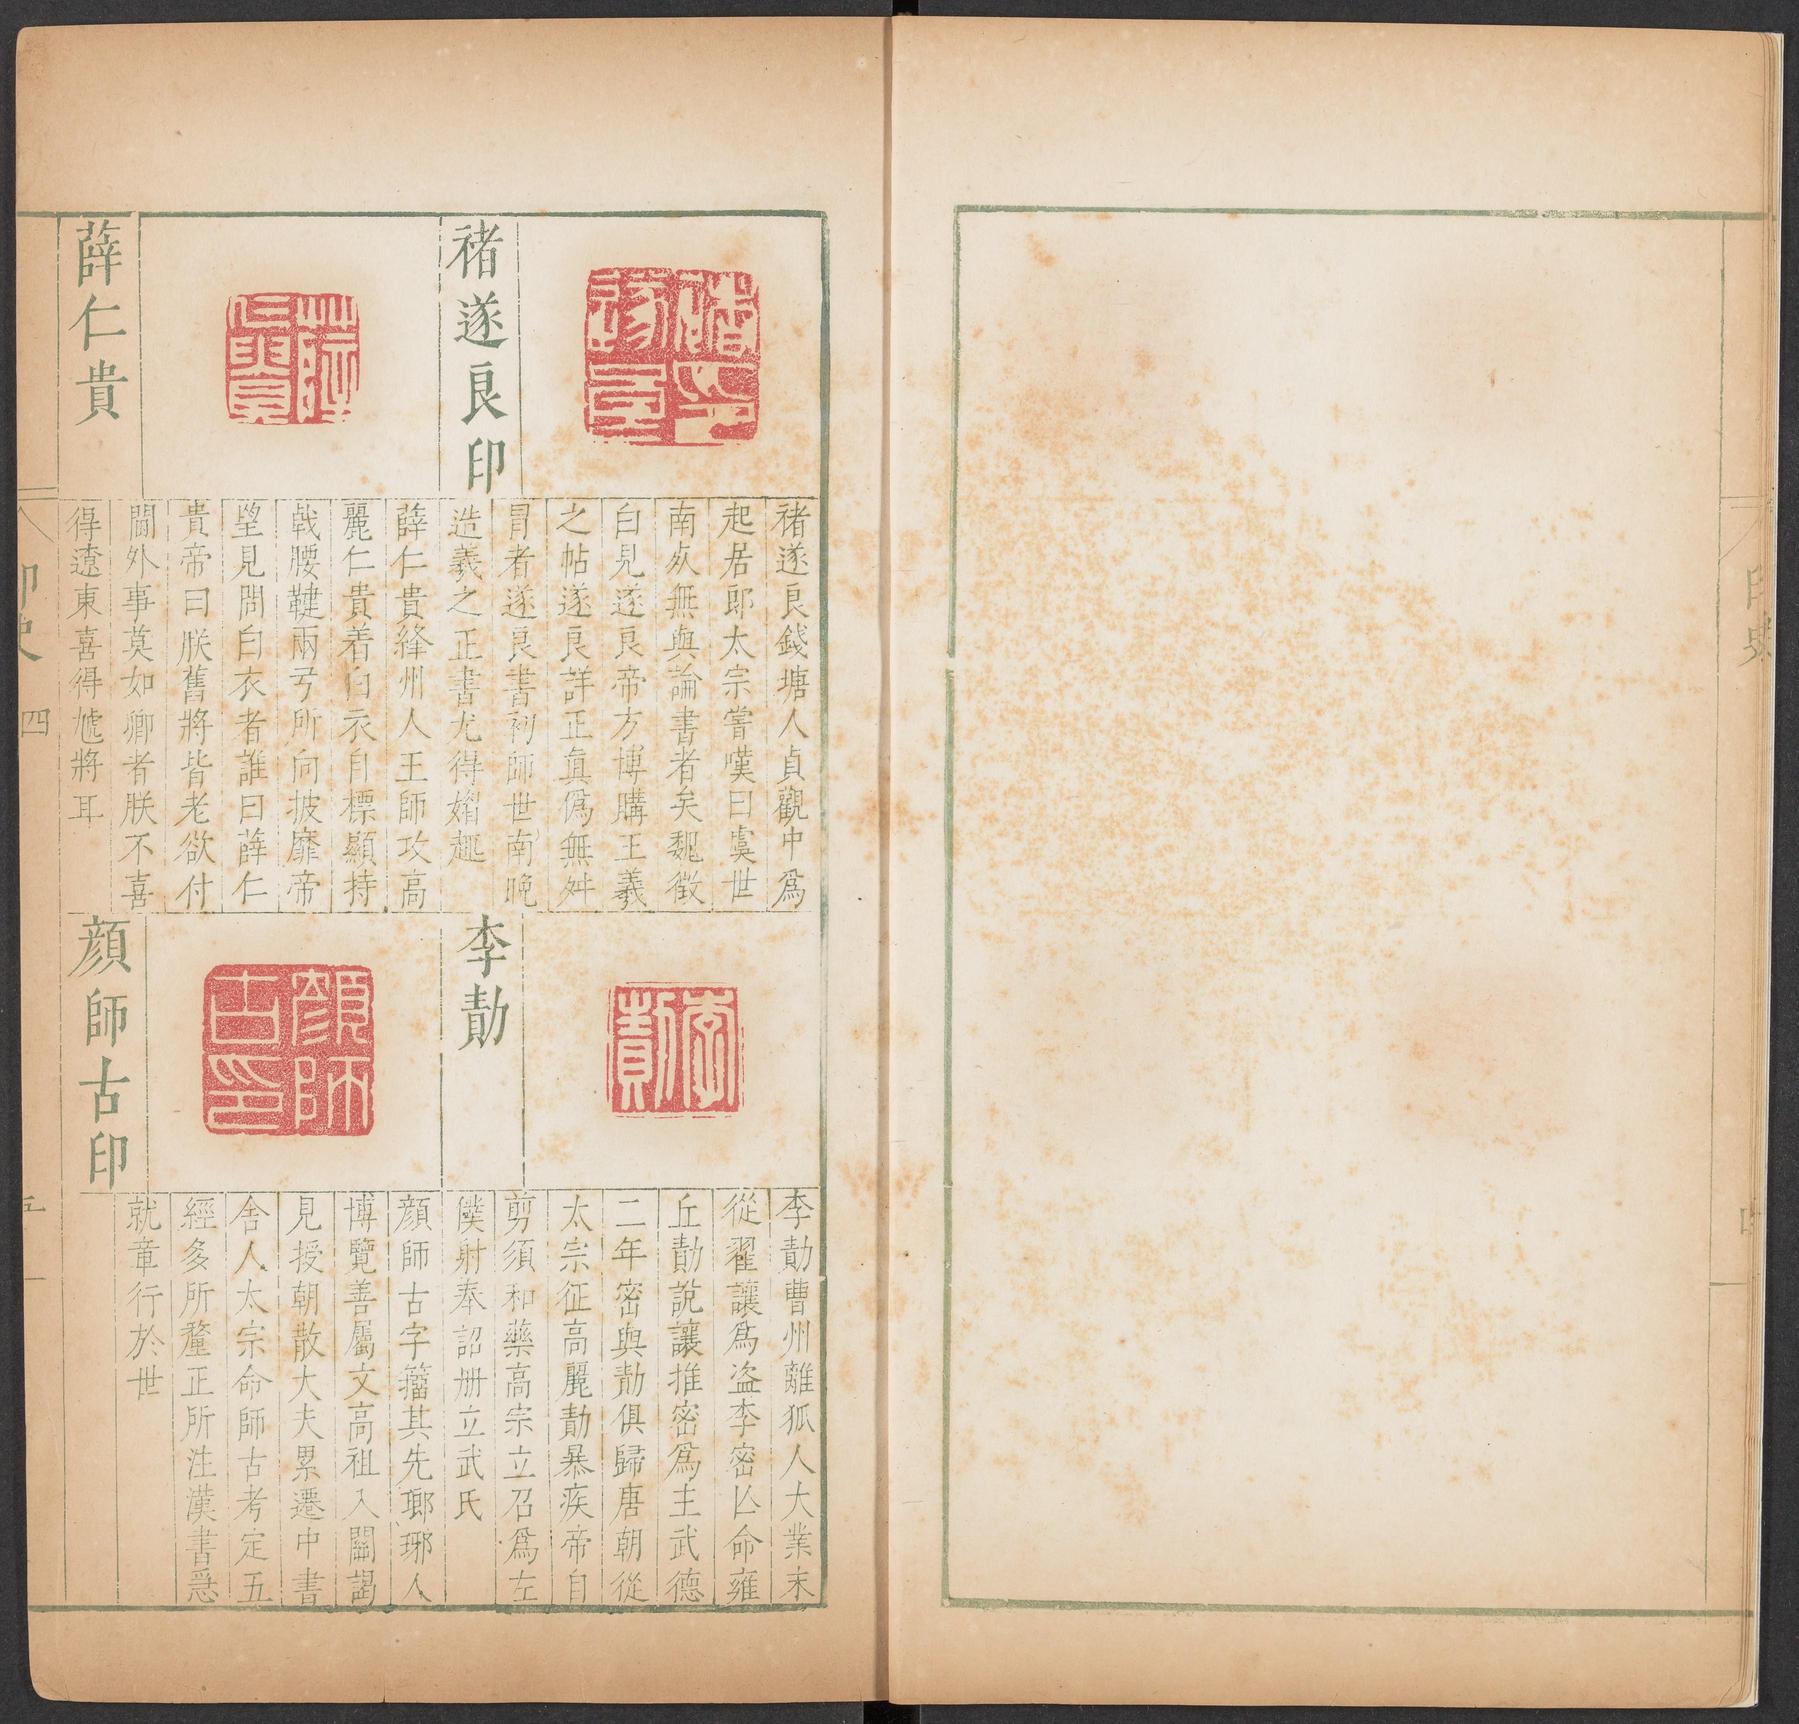 印史
四
褚遂良印
褚遂良錢塘人貞觀中爲
起居郎太宗嘗嘆曰虞世
南死無與論書者矣魏徵
白見遂良帝方博購王羲
之帖遂良詳正眞僞無舛
冒者遂良書初師世南晚
造羲之正書尤得媚趣
薛仁貴
薛仁貴絳州人王師攻高
麗仁貴着白衣自標顯持
戟腰鞬兩弓所向披靡帝
望見問白衣者誰曰薛仁
貴帝曰朕舊將皆老欲付
閫外事莫如卿者朕不喜
得遼東喜得虓將耳
李勣
李勣曹州離狐人大業末
從翟讓爲盜李密亡命雍
丘勣說讓推密爲主武德
二年密與勣俱歸唐朝從
太宗征高麗勣暴疾帝自
剪須和藥高宗立召爲左
僕射奉詔册立武氏
顔師古印
顔師古字籀其先瑯琊人
博覽善屬文高祖入關謁
見授朝散大夫累遷中書
舍人太宗命師古考定五
經多所釐正所注漢書急
就章行於世
印史 四
五